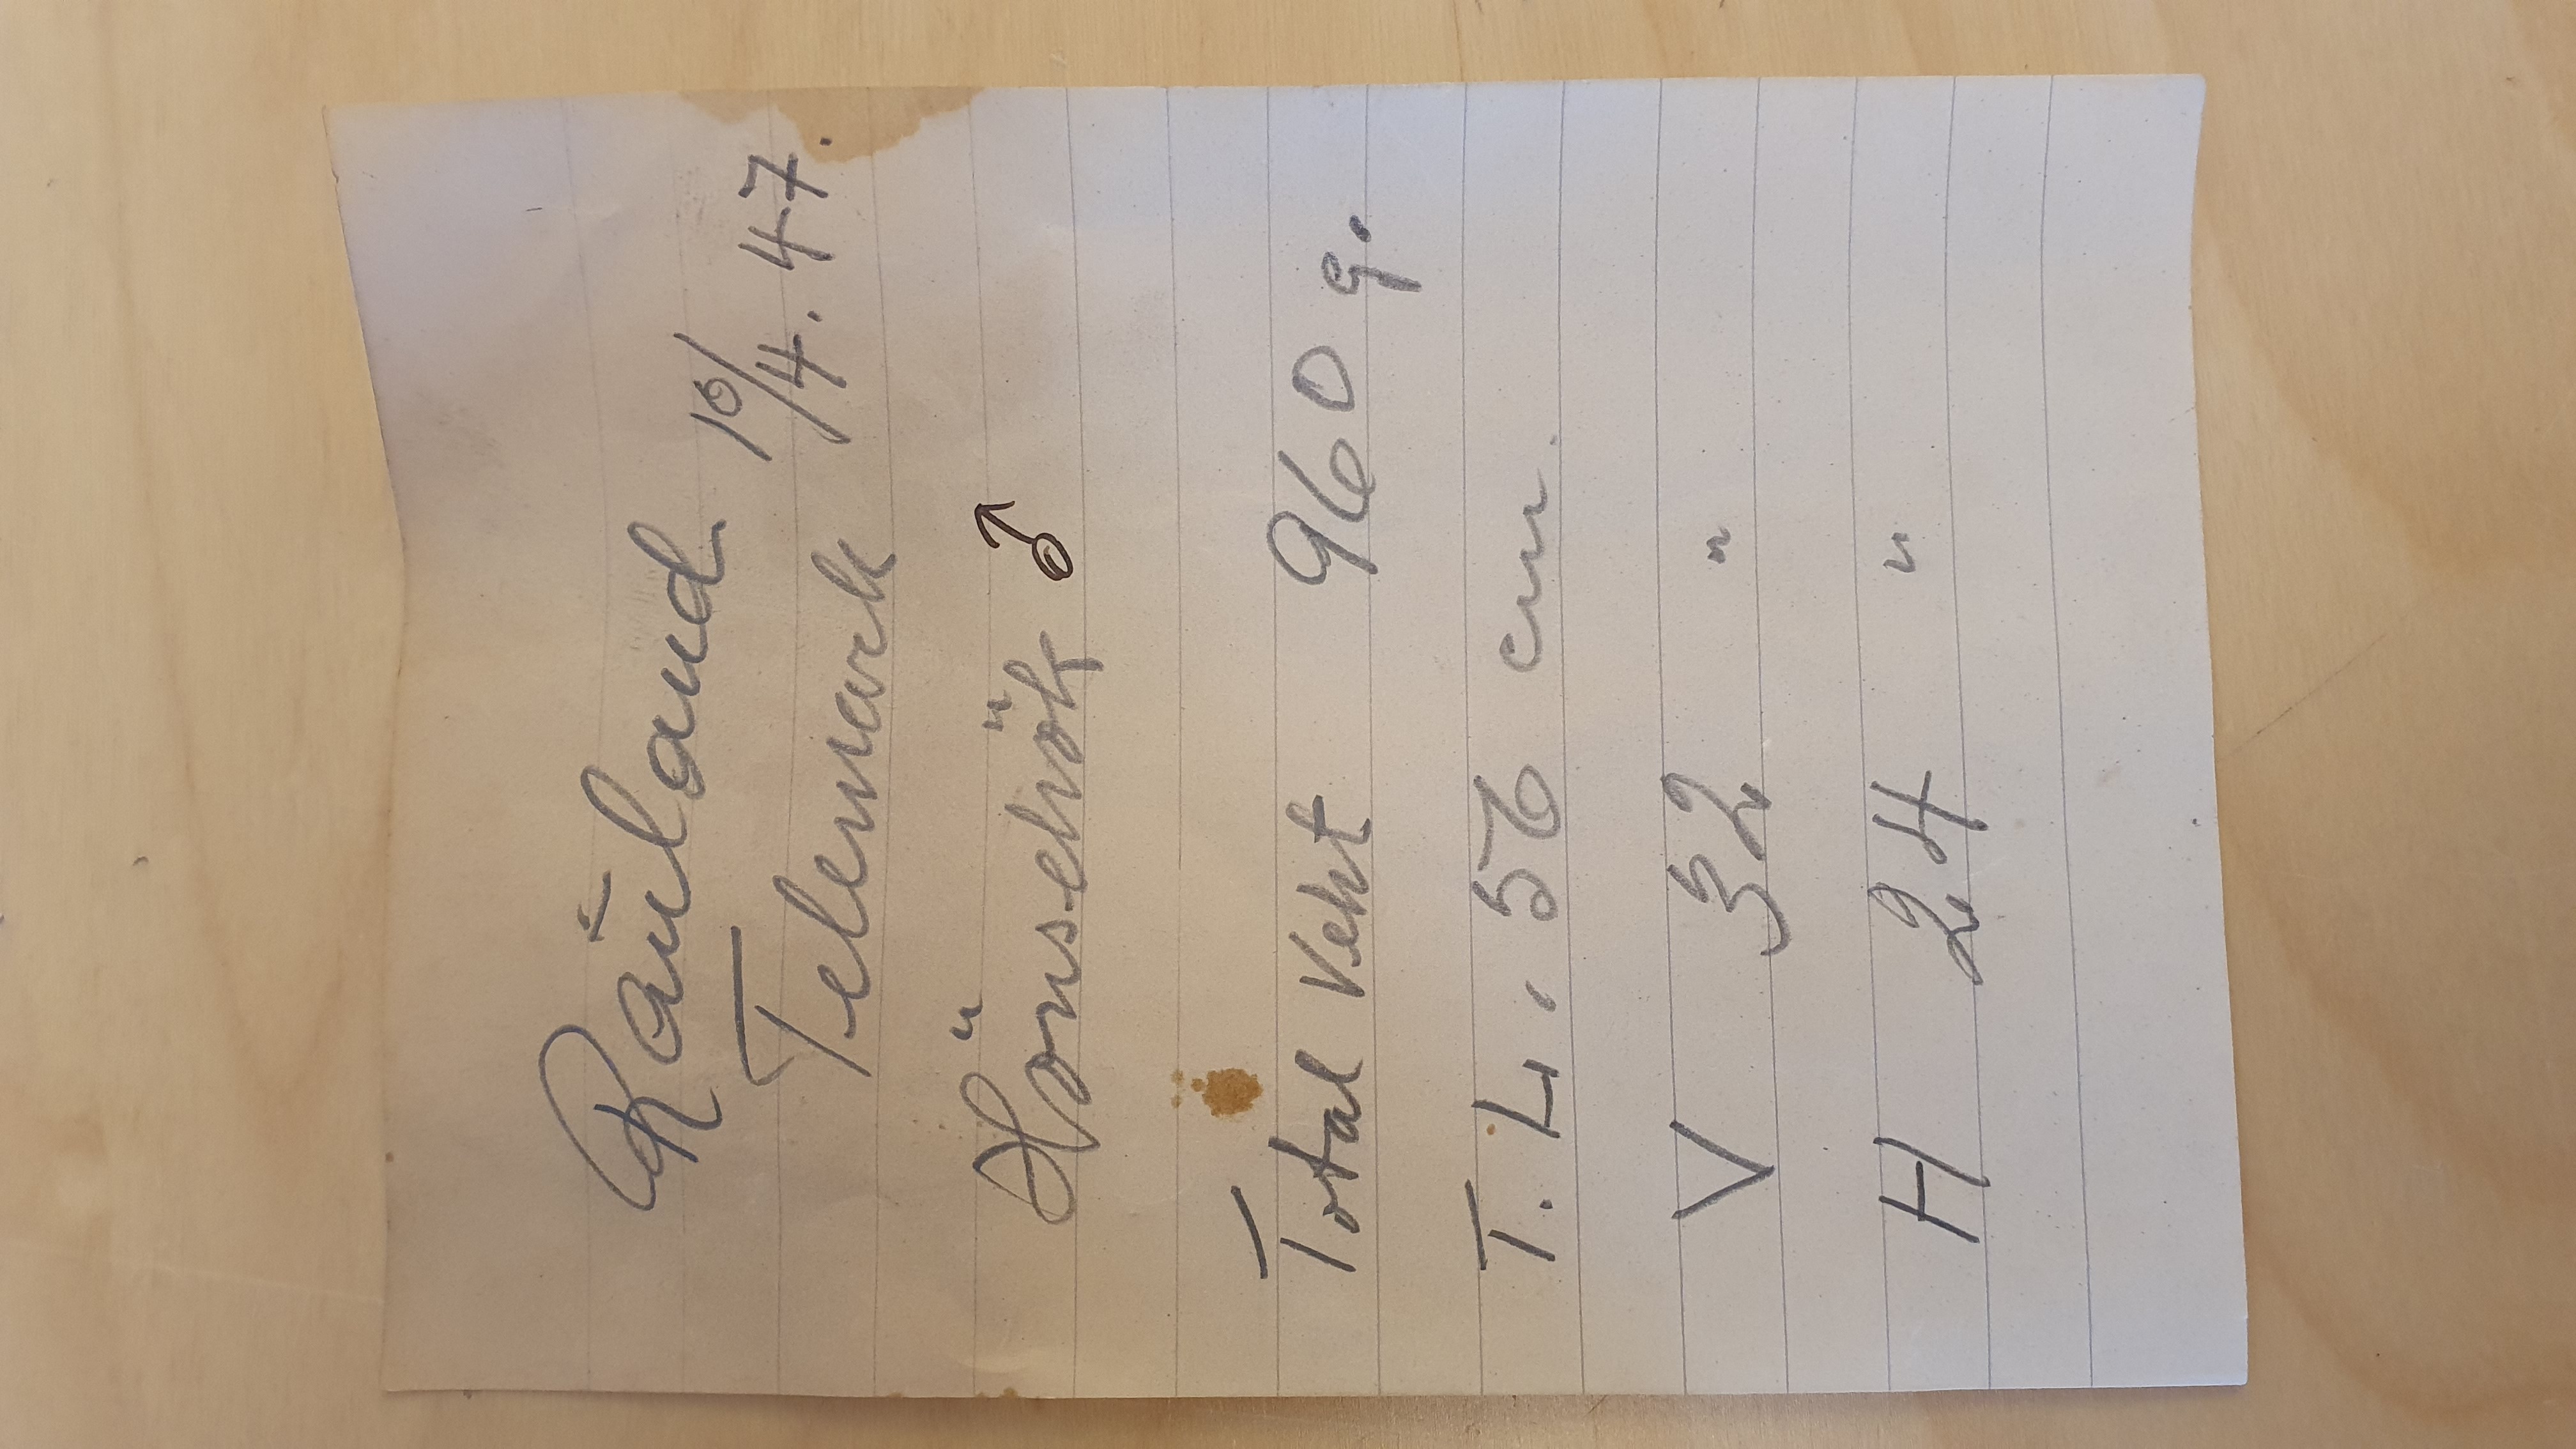 Rauland 10/4.47.
Telemark
Hönsehök ♂
Total Vekt 960 g.
T.L. 56 cm.
V 32 "
H 24 "